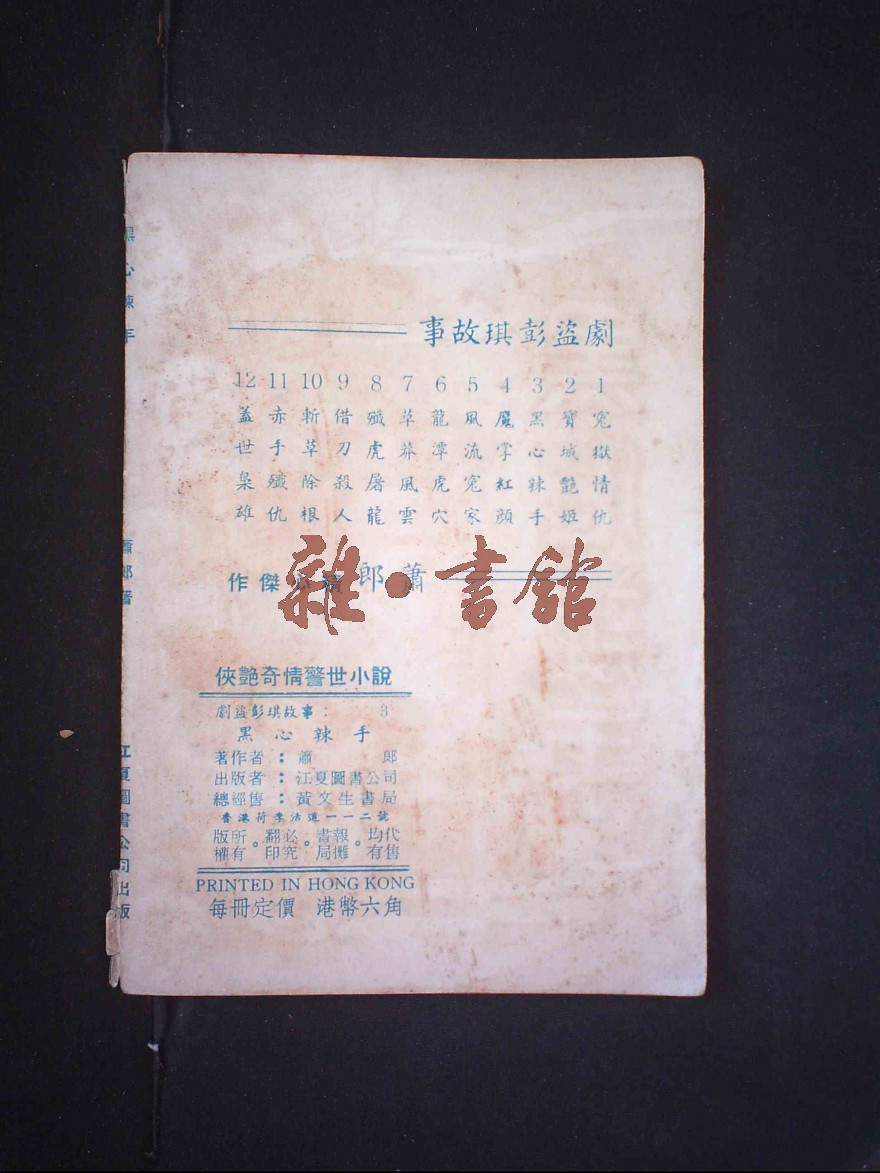 劇盜彭琪故事
1 冤獄情仇
2 寶城艷姬
3 黑心辣手
4 魔掌紅顏
5 風流冤家
6 龍潭虎穴
7 草莽風雲
8 殲虎屠龍
9 借刃殺人
10 斬草除根
11 赤手殲仇
12 蓋世梟雄
蕭郎精心傑作
雜·書館
俠艷奇情警世小說
劇盜彭琪故事： 3
黑心辣手
著作者：蕭郎
出版者：江夏圖書公司
總經售：黃文生書局
香港荷李活道一一二號
版權所有。翻印必究。書局報攤。均有代售
PRINTED IN HONG KONG
每冊定價 港幣六角
黑心辣手
蕭郎著
江夏圖書公司出版